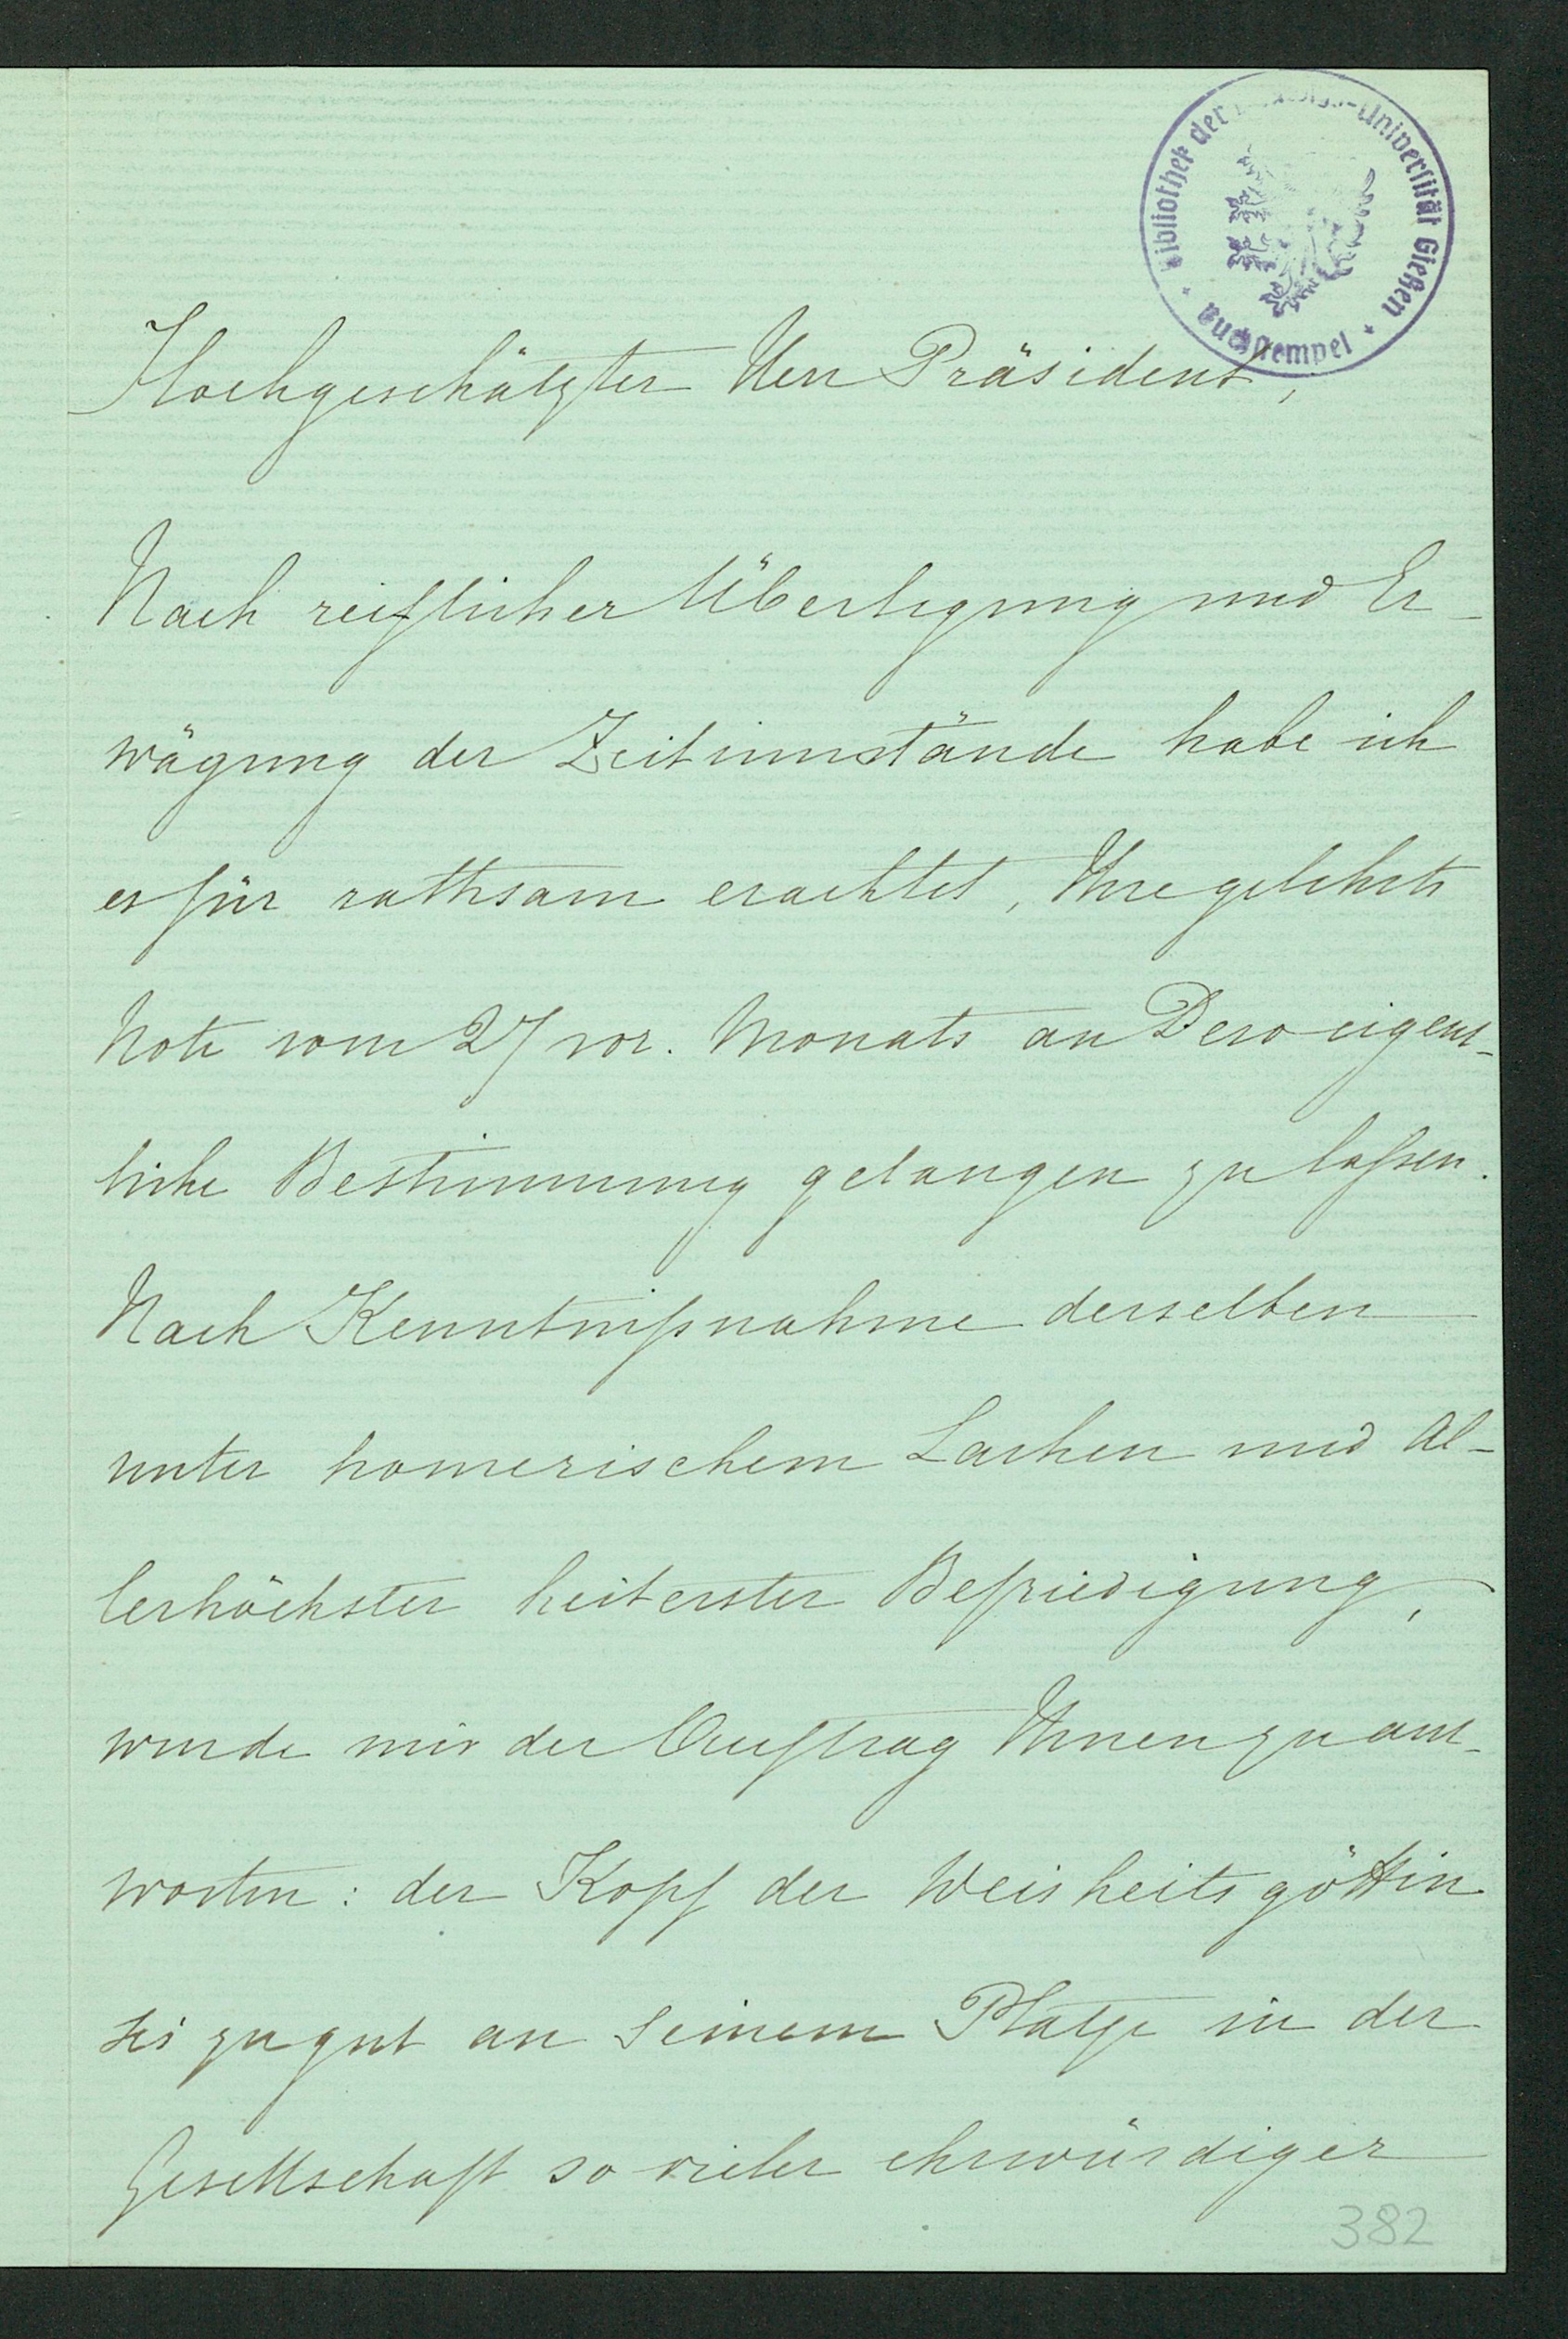 Bibliothek der
-Universität Gießen
Buchstempel
Hochgeschätzter Herr Präsident,
Nach reiflicher Überlegung und Er-
wägung der Zeitumstände habe ich
es für rathsam erachtet, Ihre gelehrte
Note vom 27 vor. Monats an Dero eigent-
liche Bestimmung gelangen zu laßen.
Nach Kenntnißnahme derselben
unter homerischem Lachen und Al-
lerhöchster heiterster Befriedigung,
wurde mir der Auftrag Ihnen zu ant-
worten: der Kopf der Weisheitsgöttin
sei zu gut an seinem Platze in der
Gesellschaft so vieler ehrwürdiger
382